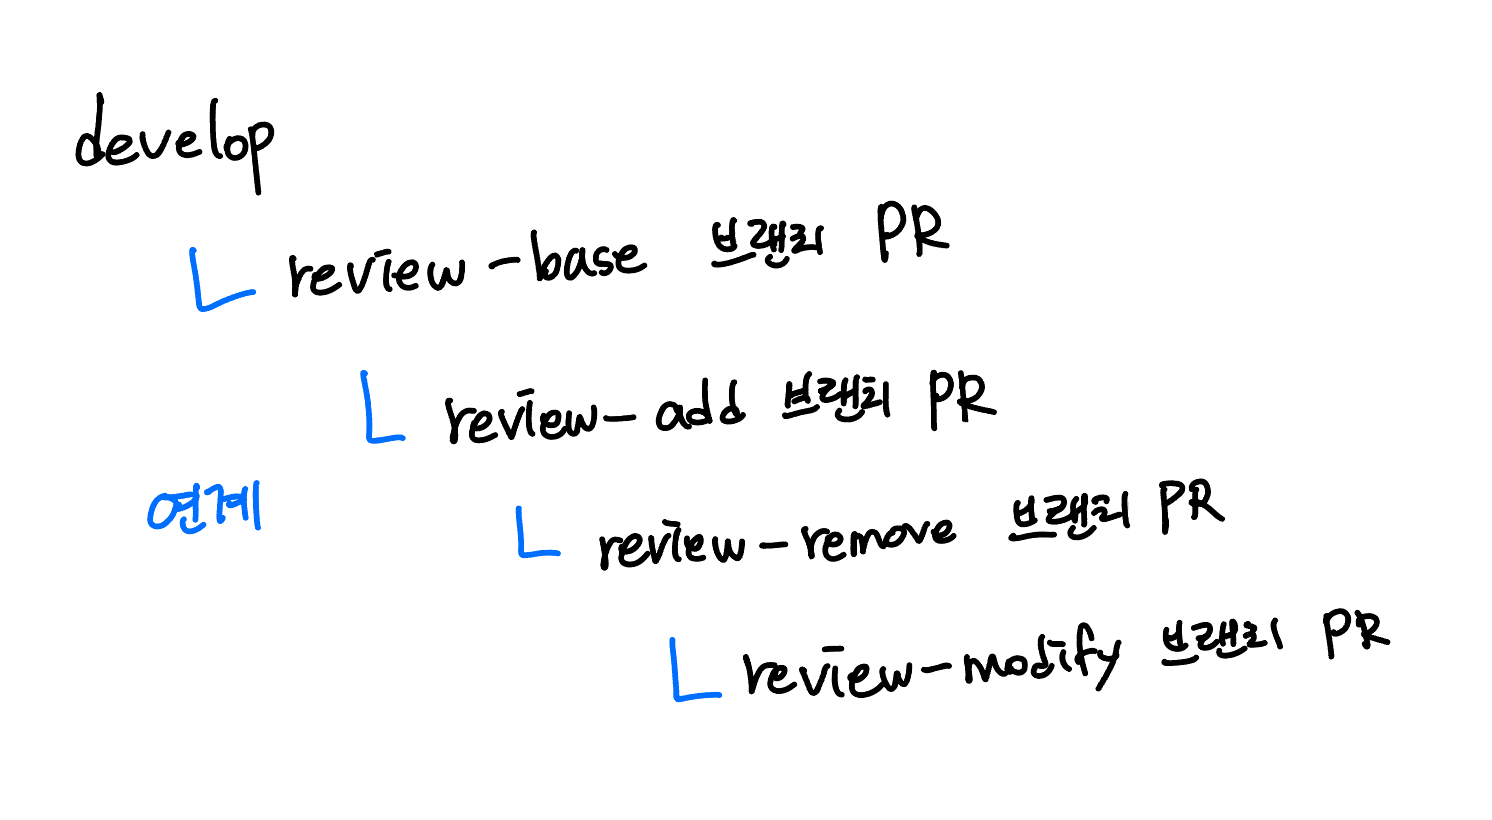 develop
review-base 브랜치 PR
review-add 브랜치 PR
연계
review-remove 브랜치 PR
review-modify 브랜치 PR